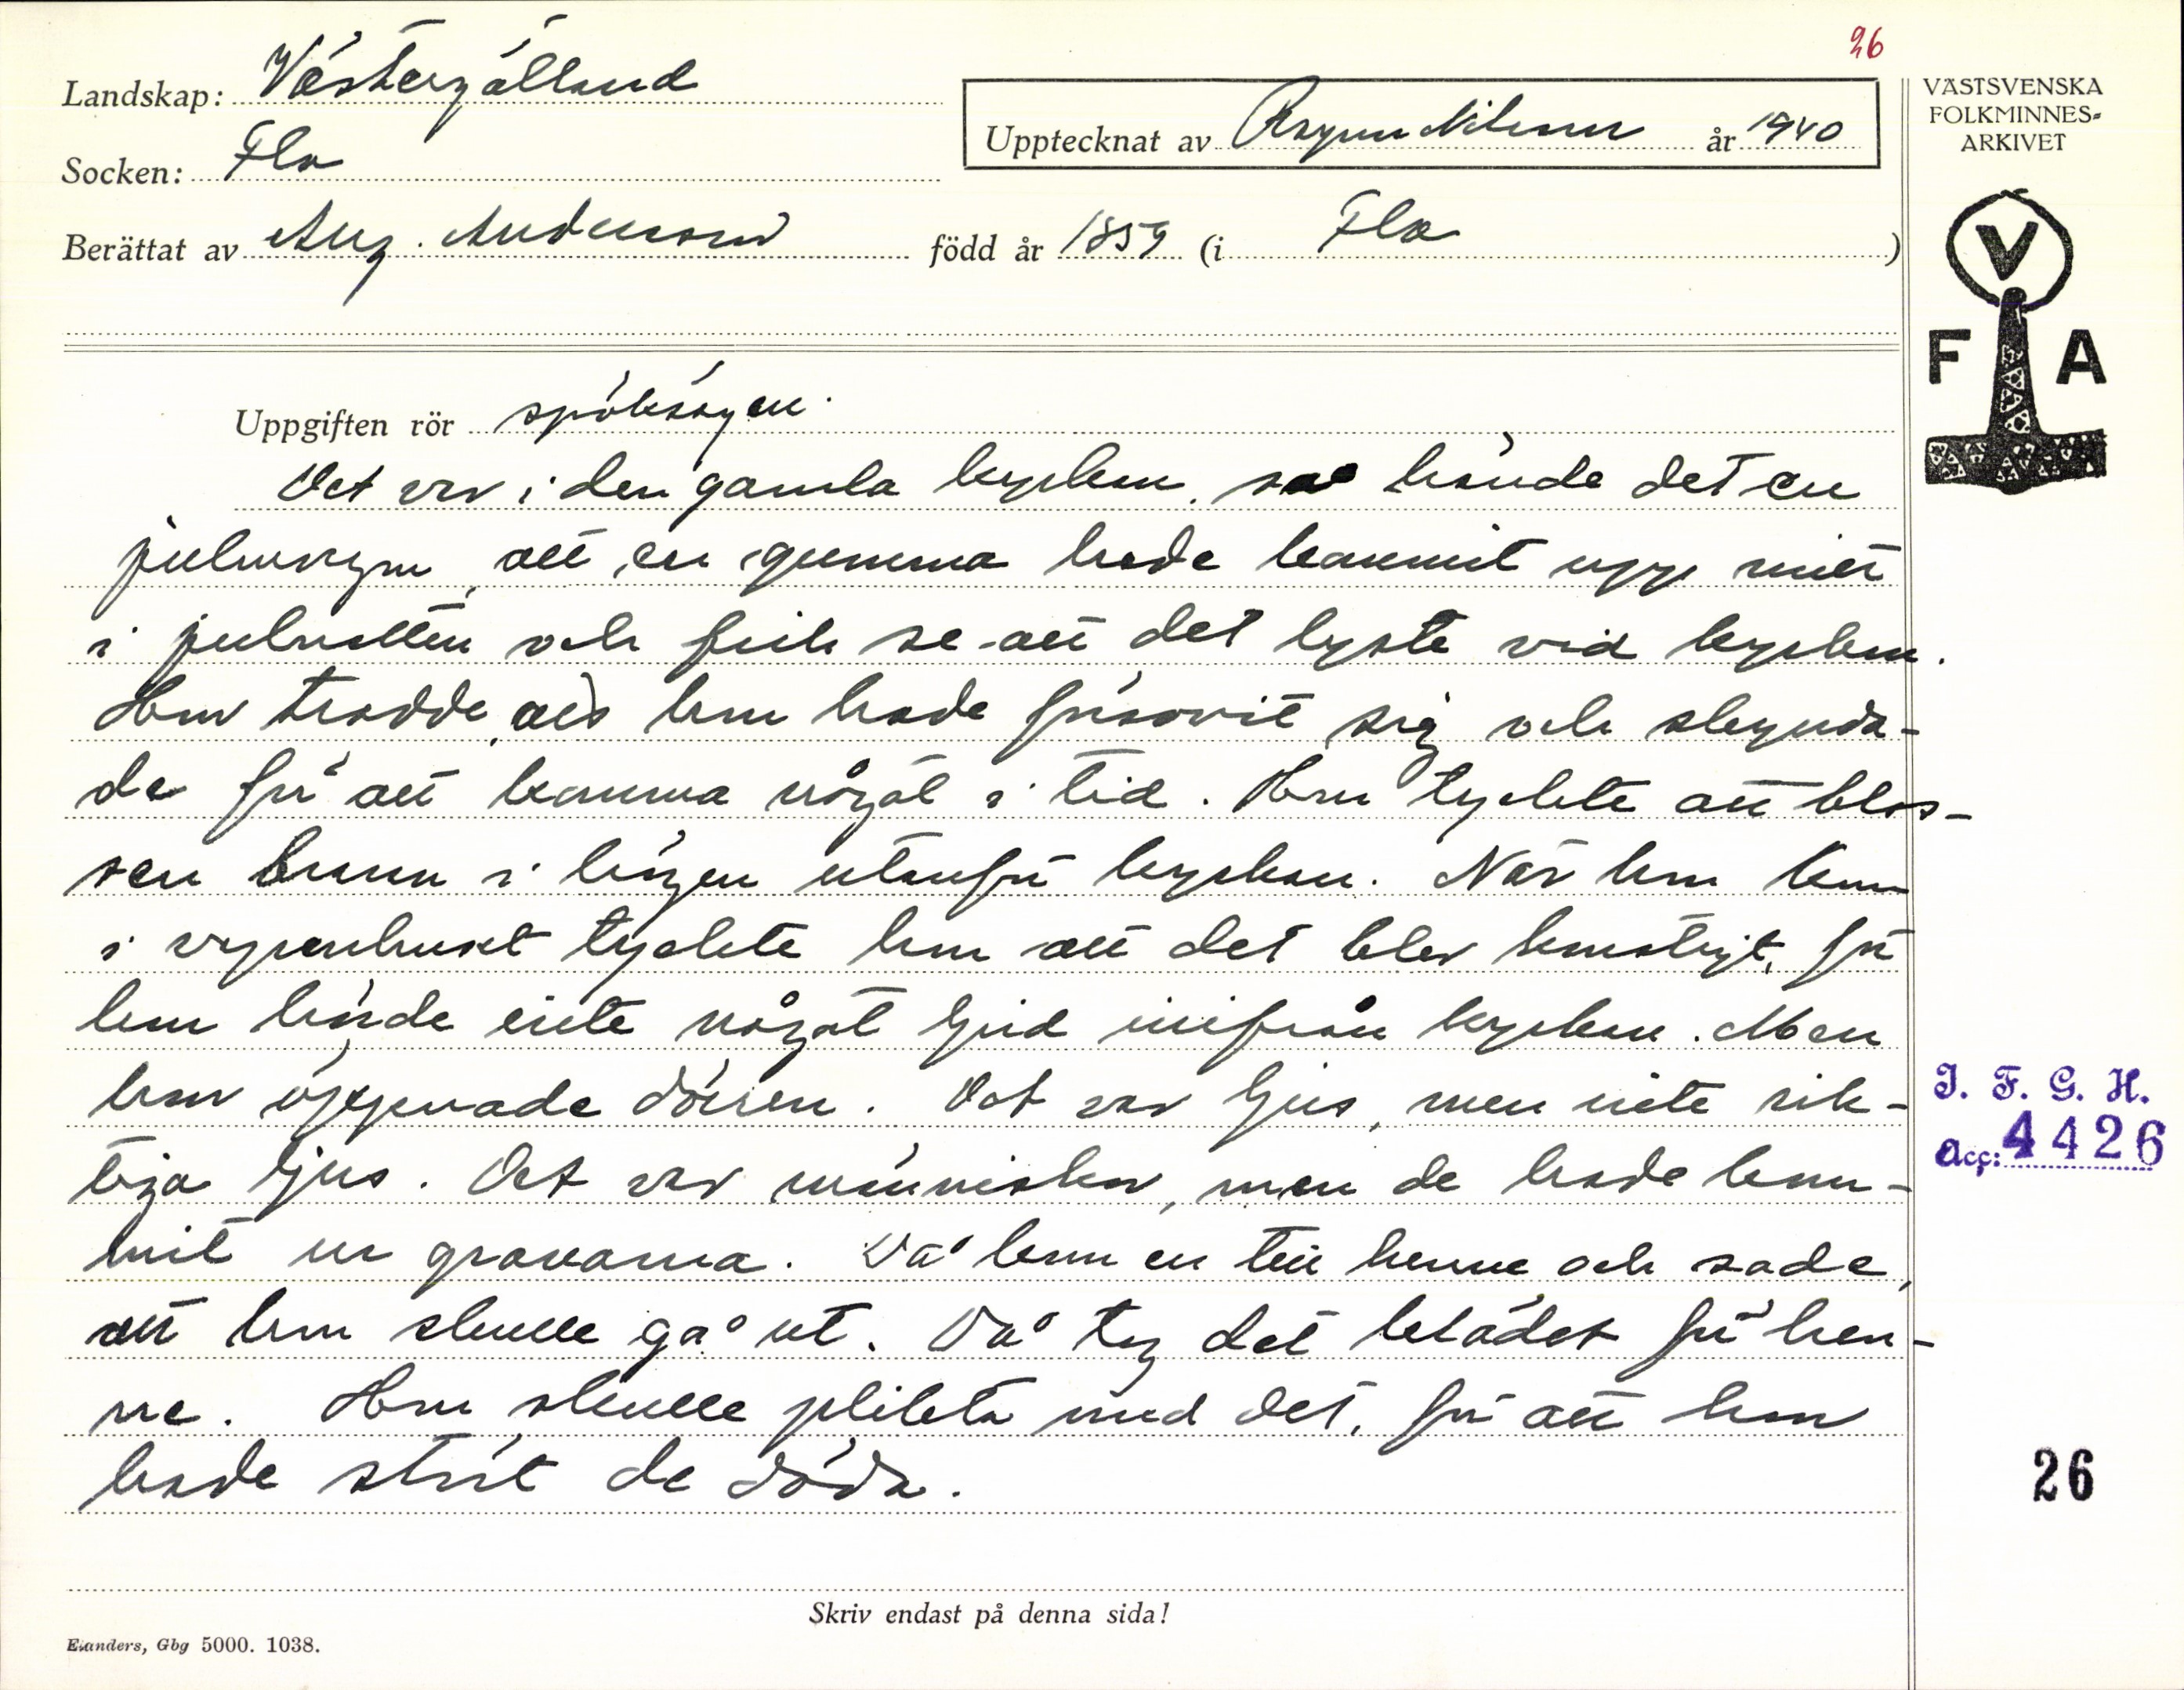 26
Landskap: Västergötland
Upptecknat av Ragnar Nilsson år 1940
VÄSTSVENSKA
FOLKMINNES=
ARKIVET
Socken: Flo
Berättat av Aug. Andersson född år 1859 (i Flo)
V
F A
Uppgiften rör spöksägen.
Det var i den gamla kyrkan, så hände det en
julmorgon, att en gumma hade kommit upp mitt
i julnatten och fick se att det lyste vid kyrkan.
Hon trodde, att hon hade försovit sig och skynda-
de för att komma något i tid. Hon tyckte att blos-
sen brann i högen utanför kyrkan. När hon kom
i vapenhuset tyckte hon att det blev konstigt, för
hon hörde inte något ljud inifrån kyrkan. Men
hon öppnade dörren. Det var ljus, men inte rik-
tiga ljus. Det var människor, men de hade kom-
mit ur gravarna. Då kom en till henne och sade,
att hon skulle gå ut. Då tog det klädet för hen-
ne. Hon skulle plikta med det, för att hon
hade stört de döda.
I. F. G. H.
Acc: 4426
26
Skriv endast på denna sida!
Elanders, Gbg 5000. 1038.